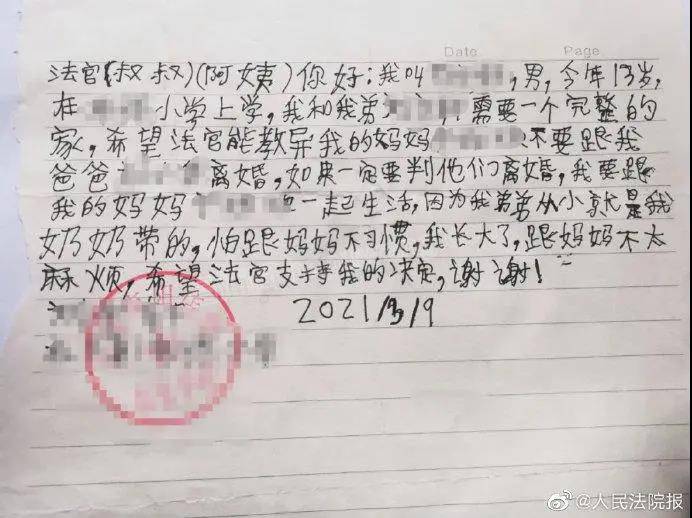 Date Page
法官(叔叔)(阿姨)你好;我叫,男,今年13岁,
在小学上学,我和我弟需要一个完整的
家,希望法官能教导我的妈妈不要跟我
爸爸离婚,如果一定要判他们离婚,我要跟
我的妈妈一起生活,因为我弟弟从小就是我
奶奶带的,怕跟妈妈不习惯,我长大了,跟妈妈不太
麻烦,希望法官支持我的决定,谢谢!
2021/3/9
@人民法院报